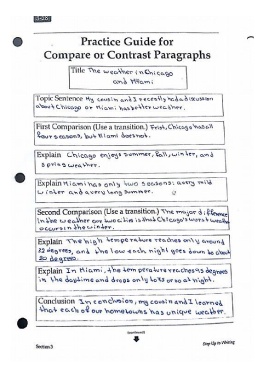 Practice Guide for
Compare or Contrast Paragraphs
Title The weather in Chicago
and Miami
Topic Sentence My cousin and I recently had a discussion
about Chicago or Miami has better weather.
First Comparison (Use a transition.) First, Chicago has all
four seasons, but Miami does not.
Explain Chicago enjoys summer, fall, winter, and
spring weather.
Explain Miami has only two seasons: a very mild
winter and a very long summer.
Second Comparison (Use a transition.) The major difference
in the weather our two cities is that Chicago's worst weather
occurs in the winter.
Explain The high temperature reaches only around
32 degrees, and the low each night goes down to about
20 degrees.
Explain In Miami, the temperature reaches
degrees
in the daytime and drops only to or so at night.
Conclusion In conclusion, my cousin and I learned
that each of our hometowns has unique weather.
Section 3
Step Up to Writing